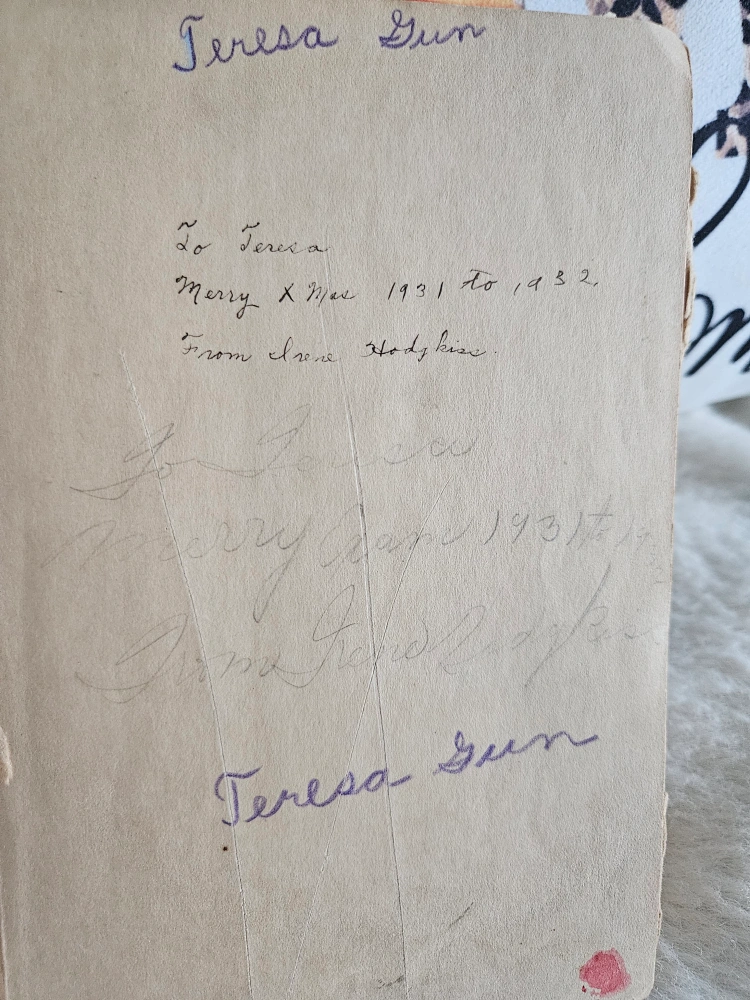 Teresa Gun
To Teresa
Merry XMas 1931 to 1932.
From Irene Hodgkiss.
To Teresa
Merry 1931 to 19
From Irene Hodgkiss
Teresa Gun